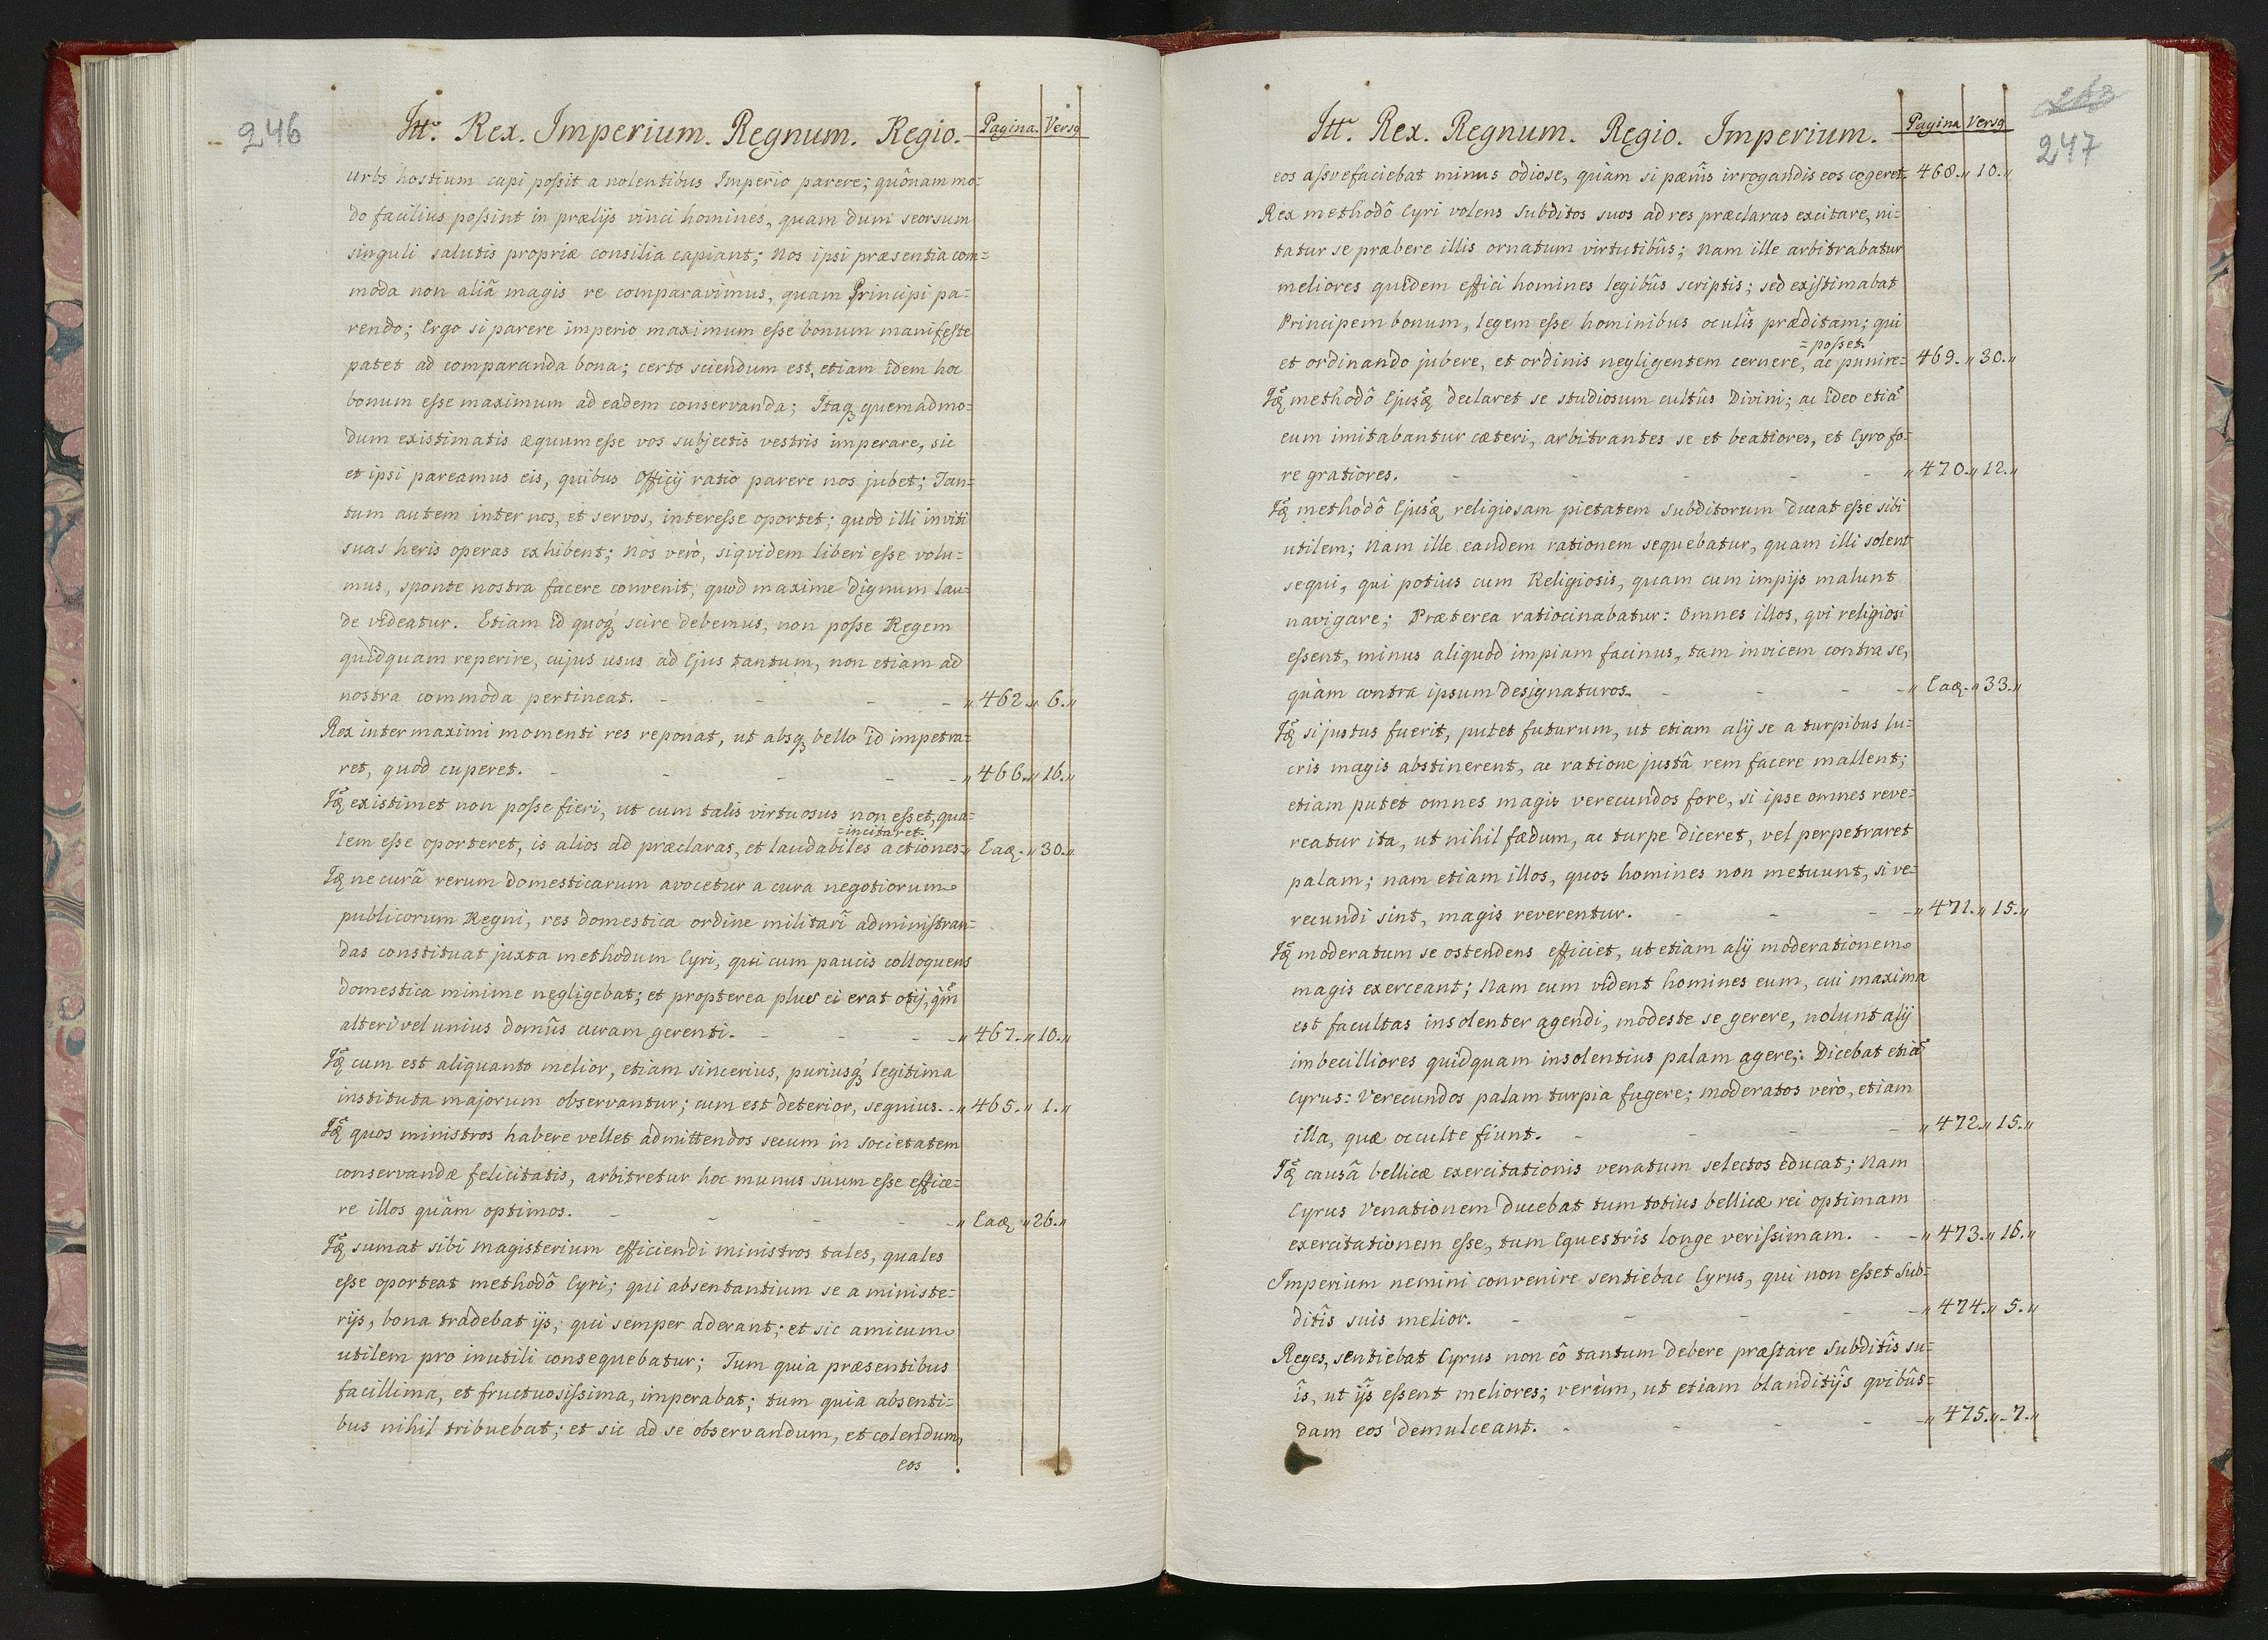 246
Itt. Rex. Imperium. Regnum. Regio. Pagina. Versq
urbs hostium capi possit a nolentibus Imperio parere; quônam mo=
do facilius possint in prælijs vinci homines, quam dum seorsum
singuli salutis propriæ consilia capiant; Nos ipsi præsentia com=
moda non aliâ magis re comparavimus, quam Principi pa=
rendo; Ergo si parere imperio maximum esse bonum manifeste
patet ad comparanda bona; certo sciendum est, etiam idem hoc
bonum esse maximum ad eadem conservanda; Itaq quemadmo=
dum existimatis æquum esse vos subjectis vestris imperare, sic
et ipsi pareamus eis, quibus Officij ratio parere nos jubet; Tan=
tum autem inter nos, et servos, interesse oportet; quod illi inviti
suas heris operas exhibent; Nos verò, siqvidem liberi esse volu=
mus, sponte nostra facere convenit, quod maxime dignum lau=
de videatur. Etiam id quoq́ scire debemus, non posse Regem
quidquam reperire, cujus usus ad Ejus tantum, non etiam ad
nostra commoda pertineat. - - - -„ 462.„ 6.„
Rex inter maximi momenti res reponat, ut absq bello id impetra=
ret, quod cuperet. - - - - -„ 466.„ 16.„
Iq̃ existimet non posse fieri, ut cum talis virtuosus non esset, qua=
=incitaret.
lem esse oporteret, is alios ad præclaras, et laudabiles actiones=„ Eaq.„ 30.„
Iq̃ ne curâ rerum domesticarum avocetur a cura negotiorum
publicorum Regni, res domestica ordine militari administran=
das constituat juxta methodum Cyri, qui cum paucis colloquens
domestica minime negligebat; et propterea plus ei erat otij, qm̃
alteri vel unius domûs curam gerenti. - - - -„ 467.„ 10.„
Iq̃ cum est aliquanto melior, etiam sincerius, puriusq́ legitima
instituta majorum observantur; cum est deterior, segnius. -„ 465.„ 1.„
Iq̃ quos ministros habere vellet admittendos secum in societatem
conservandæ felicitatis, arbitretur hoc munus suum esse effice=
re illos quàm optimos. - - - - -„ Eaq „ 26.„
Iq̃ sumat sibi magisterium efficiendi ministros tales, quales
esse oporteat methodô Cyri; qui absentantium se a ministe=
rijs, bona tradebat ijs, qui semper aderant; et sic amicum
utilem pro inutili consequebatur; Tum quia præsentibus
facillima, et fructuosissima, imperabat; tum quia absenti=
bus nihil tribuebat; et sic ad se observandum, et colendum,
eos
247
Itt. Rex. Regnum. Regio. Imperium. Pagina Versq
eos assvefaciebat minus odiose, quàm si pænis irrogandis eos cogeret. 468.„ 10.„
Rex methodô Cyri volens subditos suos ad res præclaras excitare, ni=
tatur se præbere illis ornatum virtutibûs; Nam ille arbitrabatur
meliores quidem effici homines legibûs scriptis; sed existimabat
Principem bonum, legem esse hominibus oculîs præditam; qui
=posset.
et ordinando jubere, et ordinis negligentem cernere, ac punire= 469.„ 30.„
Iq̃ methodô Ejusq̃ declaret se studiosum cultûs Divini; ac ideo etiã
eum imitabantur cæteri, arbitrantes se et beatiores, et Cyro fo=
re gratiores. - - - - - „ 470.„ 12.„
Iq̃ methodô Ejusq̃ religiosam pietatem subditorum ducat esse sibi
utilem; Nam ille eandem rationem sequebatur, quam illi solent
sequi, qui potius cum Religiosis, quam cum impijs malunt
navigare; Præterea ratiocinabatur: Omnes illos, qvi religiosi
essent, minus aliquod impium facinus, tam invicem contra se,
quàm contra ipsum designaturos. - - - -„ Eaq.„ 33.„
Iq̃ si justus fuerit, putet futurum, ut etiam alij se a turpibus lu=
cris magis abstinerent, ac ratione justâ rem facere mallent;
etiam putet omnes magis verecundos fore, si ipse omnes reve=
reatur ita, ut nihil fædum, ac turpe diceret, vel perpetraret
palam; nam etiam illos, quos homines non metuunt, si ve=
recundi sint, magis reverentur. - - - -„ 471.„ 15.„
Iq̃ moderatum se ostendens efficiet, ut etiam alij moderationem
magis exerceant; Nam cum vident homines eum, cui maxima
est facultas insolenter agendi, modeste se gerere, nolunt alij
imbecilliores quidquam insolentius palam agere; Dicebat etiã
Cyrus: Verecundos palam turpia fugere; moderatos verò, etiam
illa, quæ occulte fiunt. - - - - „ 472.„ 15.„
Iq̃ causâ bellicæ exercitationis venatum selectos educat; Nam
Cyrus Venationem ducebat tum totius bellicæ rei optimam
exercitationem esse, tum Equestrîs longe verissimam. - -„ 473.„ 16.„
Imperium nemini convenire sentiebat Cyrus, qui non esset Sub=
ditîs suis melior. - - - - -„ 474.„ 5.„
Reges, sentiebat Cyrus non eô tantum debere præstare Subditîs su=
îs, ut ijs essent meliores; verùm, ut etiam blanditijs qvibûs=
dam eos demulceant. - - - - -„ 475.„ 7.„